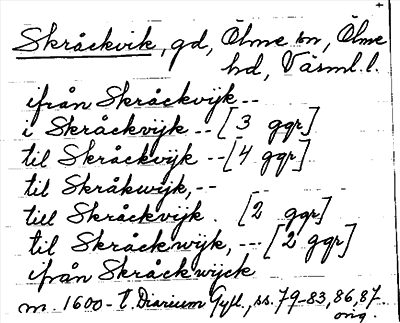 Skråckvik, gd, Ölme sn, Ölme
hd, Värml. l.
ifrån Skråckvijk --
i Skråckvijk -- [3 ggr]
til Skråckvijk -- [4 ggr]
til Skråkwijk, --
till Skråckvijk. [2 ggr]
til Skråckwijk, -- [2 ggr]
ifrån Skråckwijck
m. 1600-t. Diarium Gyll., ss. 79-83, 86, 87.
orig.